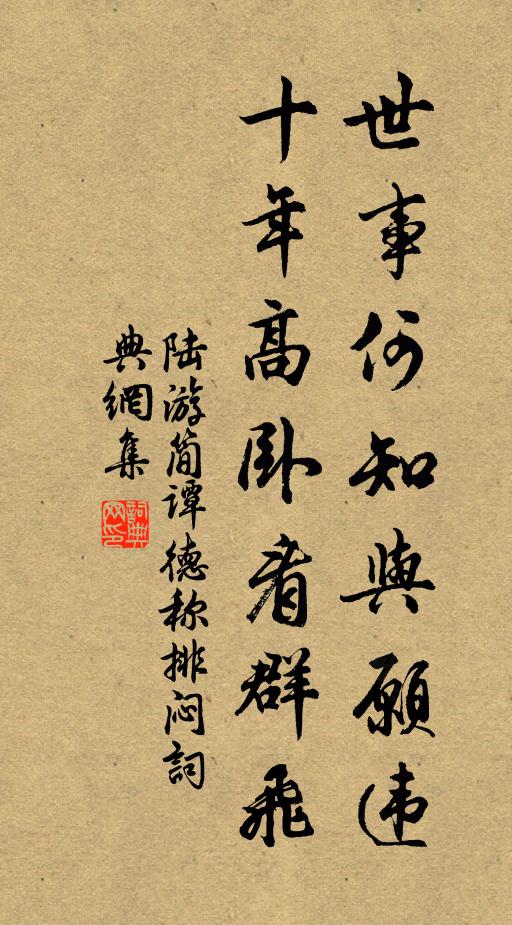 世事何知與願违
十年高卧看群飛
陆游简谭德称排闷詞
典網集
詞典網印